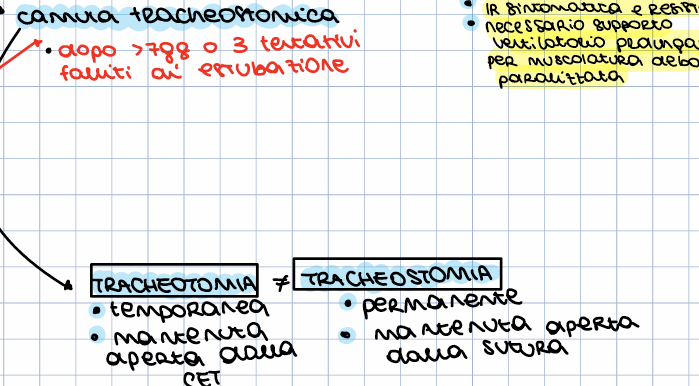 cannula tracheostomica
• dopo >7gg o 3 tentativi
falliti di estubazione
• IR sintomatica e
• necessario supporto
ventilatorio
per muscolatura
paralizzata
TRACHEOTOMIA ≠ TRACHEOSTOMIA
• temporanea
• mantenuta
aperta dalla
CET
• permanente
• mantenuta aperta
dalla sutura